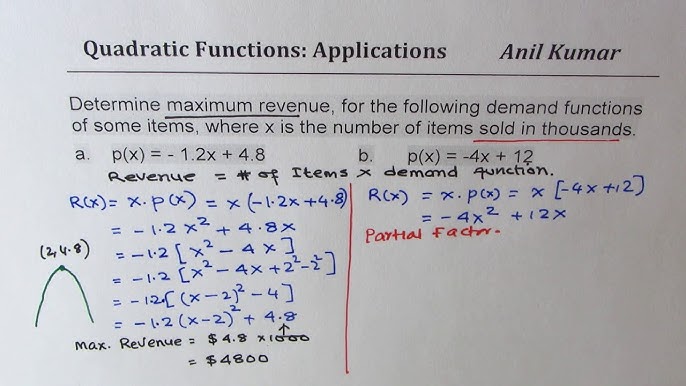 Quadratic Functions: Applications Anil Kumar
Determine maximum revenue, for the following demand functions
of some items, where x is the number of items sold in thousands.
a. p(x) = - 1.2x + 4.8 b. p(x) = -4x + 12
Revenue = # of Items x demand function.
R(x) = x . p(x) = x (-1.2x + 4.8)
= -1.2 x² + 4.8x
= -1.2 [x² - 4x]
= -1.2 [x² - 4x + 2² - 2²]
= -12[(x-2)² - 4]
= -1.2 (x-2)² + 4.8
(2, 4.8)
max. Revenue = $4.8 x 1000
= $4800
R(x) = x. p(x) = x [-4x+12]
= -4x² + 12x
Partial Factor.